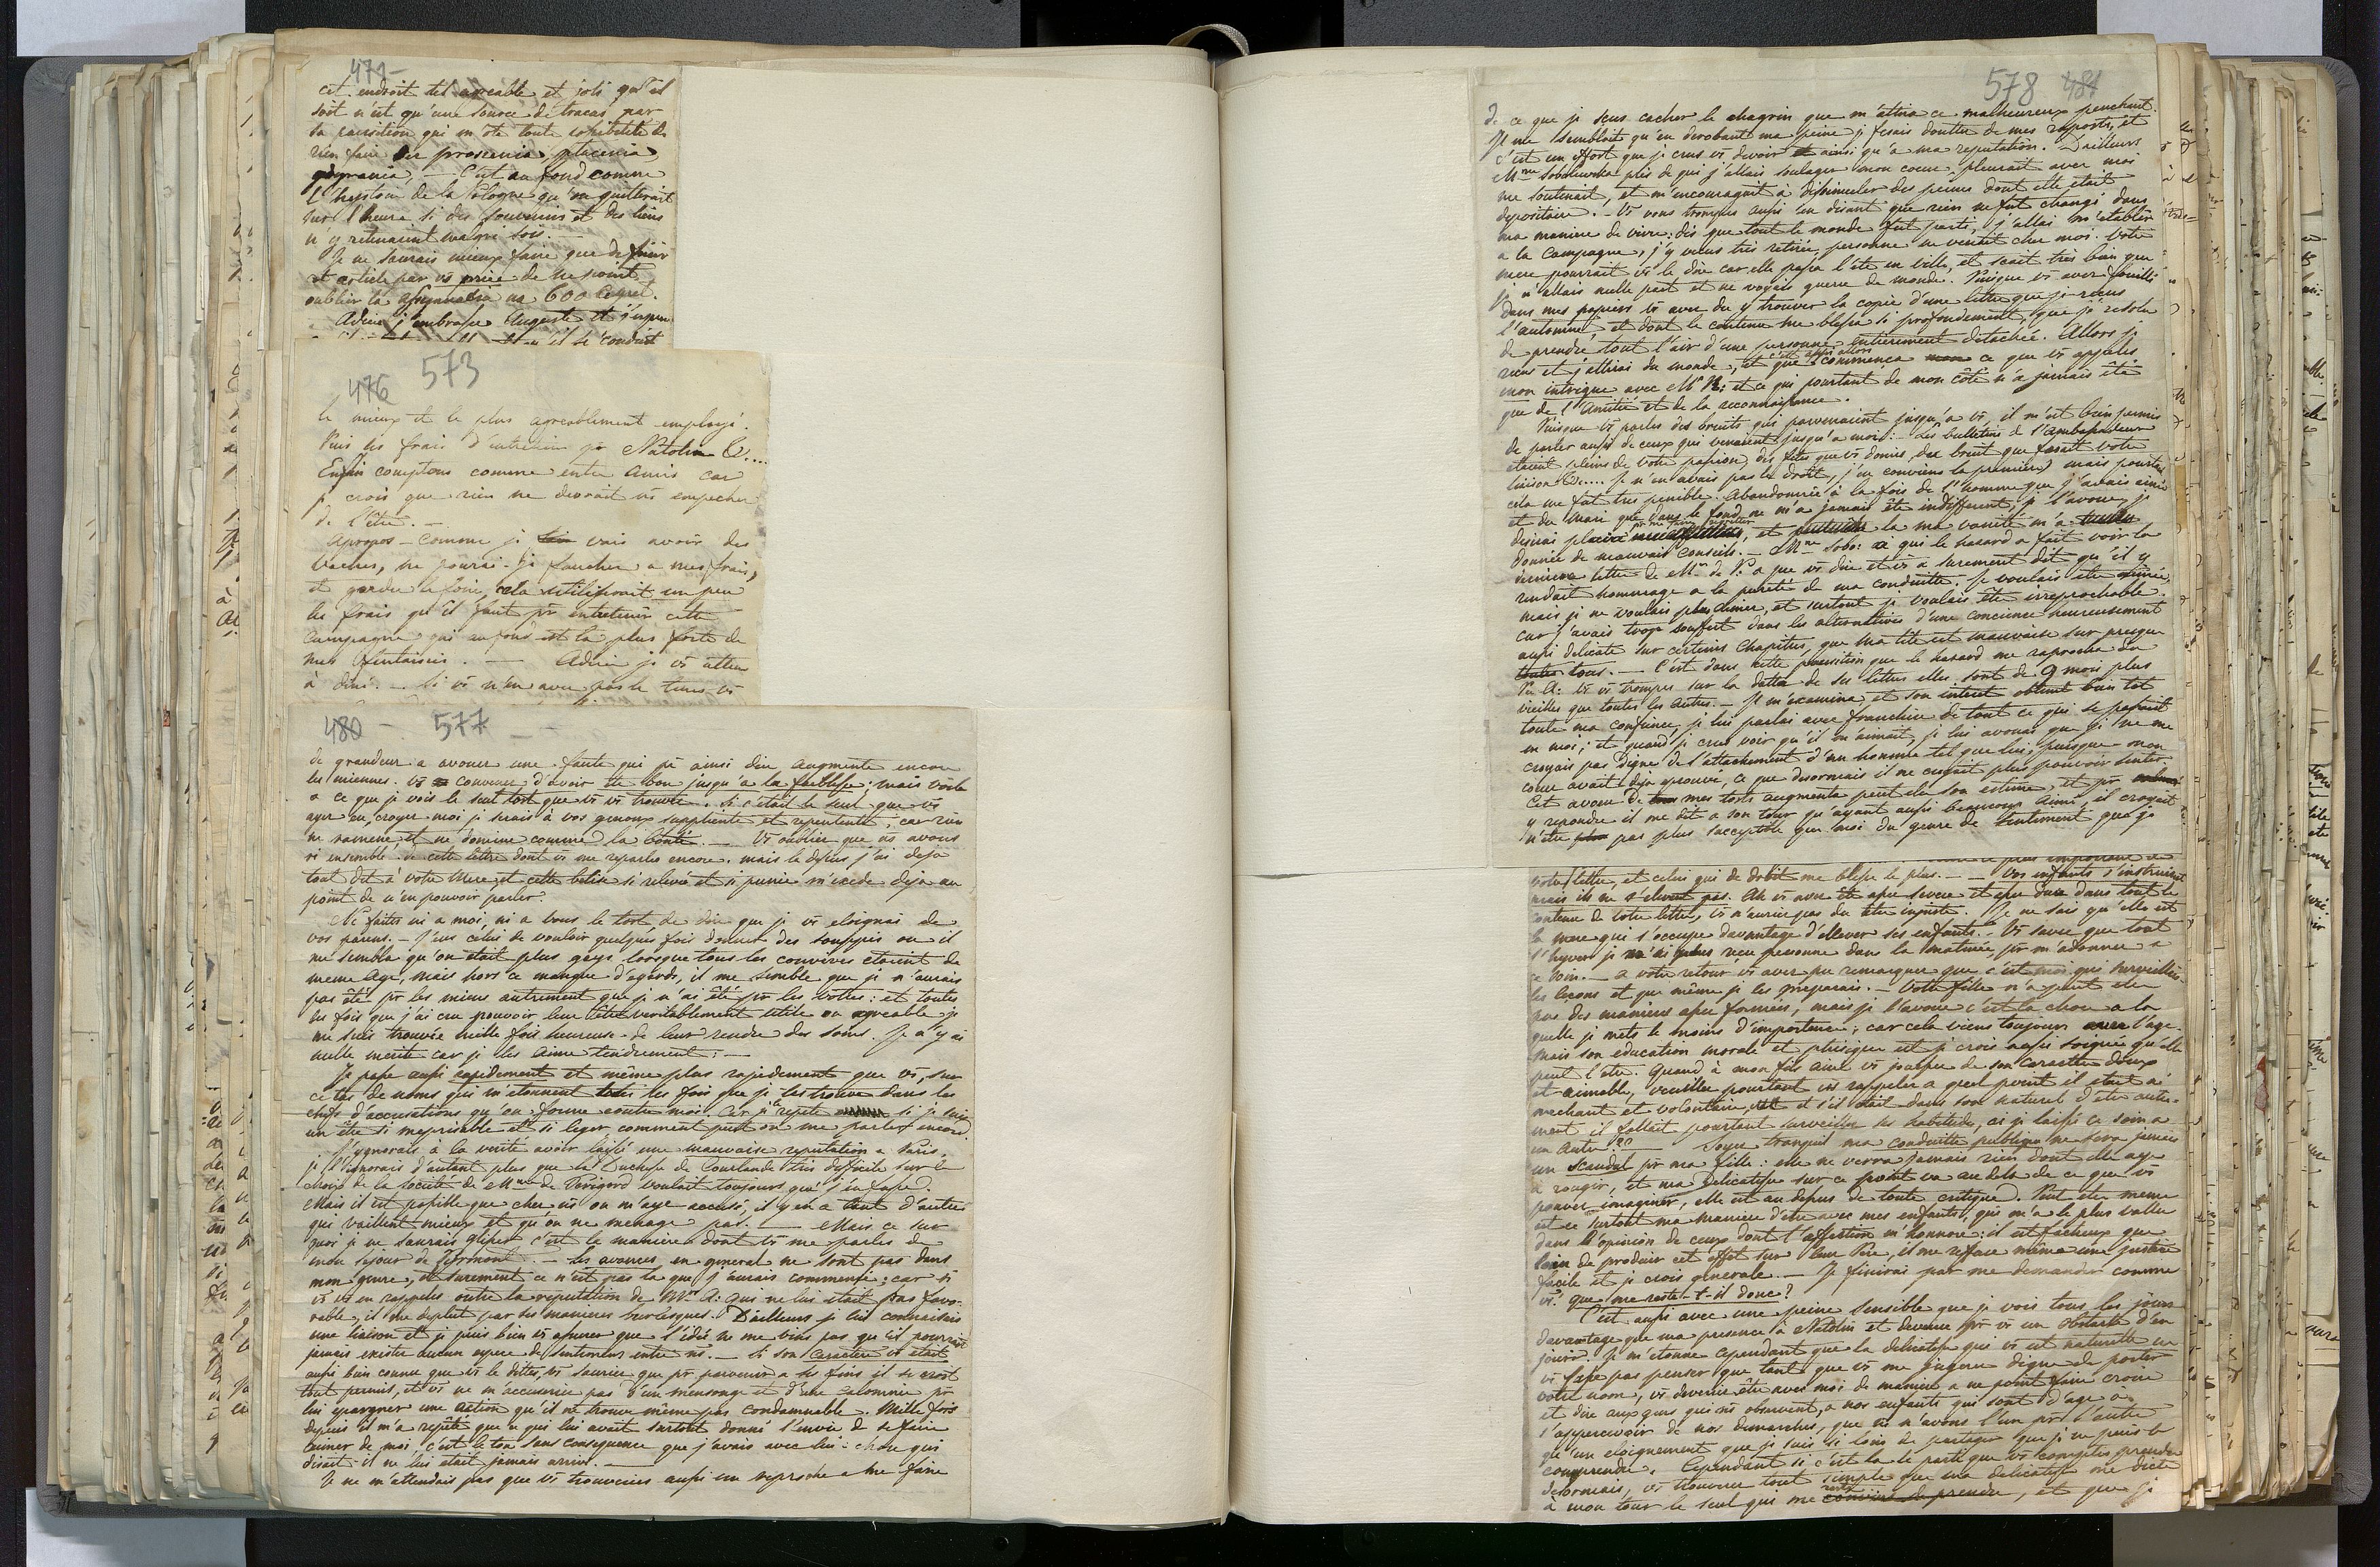 471-
cet endroit tel agreable et joli qu'il
soit n'est qu'une source de tracas par
sa position qui m'ote toute
rien faire
C'est au fond comme
l'histoire de la Pologne qu'on quitterait
sur l'heure si des souvenirs et des liens
n'y retenaient malgré soi. —
Je ne saurais mieux faire que de finir
cet article par vs prier de ne point
oublier la na 600
Adieu j'embrasse Auguste et j'espere
il se conduit
476 573
le mieux et le plus agreablement employé.
Puis les frais d'entretien pr Natolin &....
Enfin comptons comme entre amis car
je crois que rien ne devrait vs empecher
de l'être. —
Apropos — comme je vais avoir des
vaches, ne pourai-je faucher a mes frais,
et garder le foin, cela utiliserait un peu
les frais qu'il faut pr entretenir cette
campagne qui au fond est la plus forte de
mes fantaisies. — Adieu je vs attens
à diné. — Si vs n'en avez pas le tems vs
480 - 577
de grandeur a avouer une faute qui pr ainsi dire augmente encore
les miennes. vs convenez d'avoir été bon jusqu'a la faiblesse; mais voila
a ce que je vois le seul tort que vs vs trouvez. Si c'était le seul que vs
ayez eu, croyez moi je serais à vos genoux suppliante et repentante, car rien
ne ramene, et ne domine comme la bonté. — Vs oubliez que ns avons
ri ensemble de cette lettre dont vs me reparlez encore. mais la dessus j'ai deja
tout dit à votre Mere, et cette betise si relevée et si punie m'excede deja au
point de n'en pouvoir parler.
Ne faites ni a moi, ni a vous le tort de dire que je vs eloignai de
vos parens. — J'eus celui de vouloir quelques fois donner des souppés ou il
me sembla qu'on était plus gaye lorsque tous les convives etaient de
meme age, mais hors ce manque d'egards, il me semble que je n'aurais
pas été pr les miens autrement que je n'ai été pr les votres: et toutes
les fois que j'ai cru pouvoir leur être veritablement utile ou agreable je
me suis trouvée mille fois heureuse de leur rendre des soins. Je n'y ai
nulle merite car je les aime tendrement: —
Je passe aussi rapidement et même plus rapidement que vs, sur
ce tas de noms qui m'etonnent tous les fois que je les trouve dans les
chefs d'accusations qu'on forme contre moi. Car je le repete si je suis
un être si meprisable et si leger comment peut on me parler encore.
J'ygnorais à la verité avoir laissé une mauvaise reputation a Paris.
je l'ignorais d'autant plus que la Duchesse de Courlande très difficile sur le
choix de la société de Mme de Perigord voulait toujours que j'en fusse.
Mais il est possible que chez vs on m'aye accusé, il y en a tant d'autres
qui vaillent mieux et qu'on ne menage pas. — Mais ce sur
quoi je ne saurais glisser c'est la maniere dont vs me parlez de
mon séjour de — Les avances en general ne sont pas dans
mon genre, et surement ce n'est pas la que j'aurais commencé: car si
vs vs en rappelez outre la reputation de Mr A: qui ne lui etait pas favo-
rable, il me deplut par ses manieres burlesques. D'ailleurs je lui connaissais
une liaison et je puis bien vs assurer que l'idée ne me vint pas qu'il pourrait
jamais exister aucun espece de sentiment entre ns. — Si son caractere vs etait
aussi bien connu que vs le dittes, vs sauriez que pr parvenir a ses fins il se croit
tout permis, et vs ne m'accuseriez pas d'un mensonge et d'une calomnie pr
lui epargner une action qu'il ne trouve même pas condamnable. Mille fois
depuis il m'a repété que ce qui lui avait surtout donné l'envie de se faire
aimer de moi, c'est le ton sans consequence que j'avais avec lui: chose qui
disait-il ne lui etait jamais arrivé. —
Je ne m'attendais pas que vs trouveriez aussi un reproche a me faire
578 481
de ce que je sens cacher le chagrin que m'attira ce malheureux penchant.
Il me semblait qu'en derobant ma peine je fesais doutter de mes rapports, et
c'est un effort que je crus vs devoir ainsi qu'a ma reputation. D'ailleurs
Mme Sobolewska près de qui j'allais soulager mon coeur, pleurait avec moi
me soutenait, et m'encourageait à dissimuler des peines dont elle était
depositaire. — Vs vous trompez aussi en disant que rien ne fut changé dans
ma maniere de vivre: dès que tout le monde fut parti, j'allai m'etablir
a la Campagne, j'y vecus très retirée, personne ne venait chez moi. Votre
mere pourrait vs le dire car elle passa l'été en ville, et scait très bien que
je n'allais nulle part et ne voyais guerre de monde. Puisque vs avez fouillé
dans mes papiers vs avez du y trouver la copie d'une lettre que je recus
l'automne, et dont le contenu me blessa si profondement, que je resolu
de prendre tout l'air d'une personne entierement detachée. Allors je
recus et j'attirai du monde, et c'est apres allors que commença ce que vs appelés
mon intrigue avec Mr N: et ce qui pourtant de mon côté n'a jamais été
que de l'amitié et de la reconnaissance.
Puisque vs parlez des bruits qui parvenaient jusqu'a vs, il m'est bien permis
de parler aussi de ceux qui venaient jusqu'a moi: Les bulletins de l'ambassadeur
etaient pleins de votre passion, des fetes que vs donnez, du bruit que fesait votre
liaison &..... Je n'en avais pas le droit, j'en conviens la premiere, mais pourtant
cela me fut tres penible. Abandonnée à la fois de l'homme que j'avais aimé
et du Mari que dans le fond ne m'a jamais été indifferent, je l'avoue, je
desirai plaire pr me faire regretter, et la ma vanité m'a
donnée de mauvais conseils. — Mme Sobo: a qui le hazard a fait voir la
derniere lettre de Mr de N: a pu vs dire et vs a surement dit qu'il y
rendait hommage a la pureté de ma conduitte. Je voulais être aimée,
mais je ne voulais plus aimer, et surtout je voulais être irreprochable.
car j'avais trop souffert dans les alternatives d'une concience heureusement
aussi delicate sur certains chapitres, que ma tête est mauvaise sur presque
tous. — C'est dans cette position que le hazard me raprocha du
Pr A: vs vs trompez sur la datte de ses lettres elles sont de 9 mois plus
vieilles que toutes les autres. — Il m'examina, et son interet obtint bien tot
toute ma confiance, je lui parlai avec franchise de tout ce qui se passait
en moi; et quand je crus voir qu'il m'aimait, je lui avouai que je ne me
croyais pas digne de l'attachement d'un homme tel que lui; puisque mon
coeur avait deja eprouvé, ce que desormais il ne croyait plus pouvoir sentir.
Cet aveu de mes torts augmenta peut être son estime, et pr
y repondre il me dit a son tour qu'ayant aussi beaucoup aimé, il croyait
n'être pas plus susceptible que moi du genre de sentiment que je
votre lettre, et celui qui de droit me blesse le plus. — Vos enfants s'instruisent
mais ils ne s'elevent pas. Ah vs avez été assez severe et assez dure dans tout le
contenu de votre lettre, vs n'auriez pas du être injuste. Je ne sai qu'elle est
la mere qui s'occupe davantage d'ellever ses enfants. Vs savez que tout
l'hyver je n'ai recu personne dans la matinée, pr m'adonner a
ce soin. — a votre retour vs avez pu remarquer que c'est moi qui surveillais
les leçons et que même je les preparais. — Votre fille n'a peut être
pas des manieres assez formées, mais je l'avoue c'est la chose a la
quelle je mets le moins d'importance; car cela viens toujours avec l'age.
Mais son education morale et phisique est je crois aussi soignée qu'elle
peut l'etre. Quand à mon fils ainé vs parlez de son caractere doux
et aimable, veuillez pourtant vs rappeler a quel point il etait né
mechant et volontaire, et s'il etait dans son naturel d'etre autre-
ment il fallait pourtant surveiller ses habitudes, ai je laissé ce soin a
un autre?? Soyez tranquil ma conduitte publique ne sera jamais
un scandal pr ma fille: elle ne verra jamais rien dont elle aye
a rougir, et ma delicatesse sur ce point va au dela de ce que vs
pouvez imaginer, elle est au dessus de toute critique. Peut etre meme
est ce surtout ma maniere d'etre avec mes enfants, qui m'a le plus vallu
dans l'opinion de ceux dont l'affection m'honnore: il est facheux que
loin de produire cet effet sur leur Pere, il me refuse même une justice
facile et je crois generale. — Je finirai par me demander comme
vs. que me reste-t-il donc?
C'est aussi avec une peine sensible que je vois tous les jours
davantage que ma presence à Natolin et devenue pr vs un obstacle d'en
jouir. Je m'etonne cependant que la delicatesse qui vs est naturelle ne
vs fasse pas penser que tant que vs me jugerez digne de porter
votre nom, vs devriez être avec moi de maniere a ne point faire croire
et dire aux gens qui ns observent, a nos enfants qui sont d'age à
s'appercevoir de nos demarches, que ns n'avons l'un pr l'autre
qu'un eloignement que je suis si loin de partager que je ne puis le
comprendre. Cependant si c'est la le parti que vs comptez prendre
desormais, vs trouverez tout simple que ma delicatesse me dicte
à mon tour le seul qui me reste a prendre, et que je